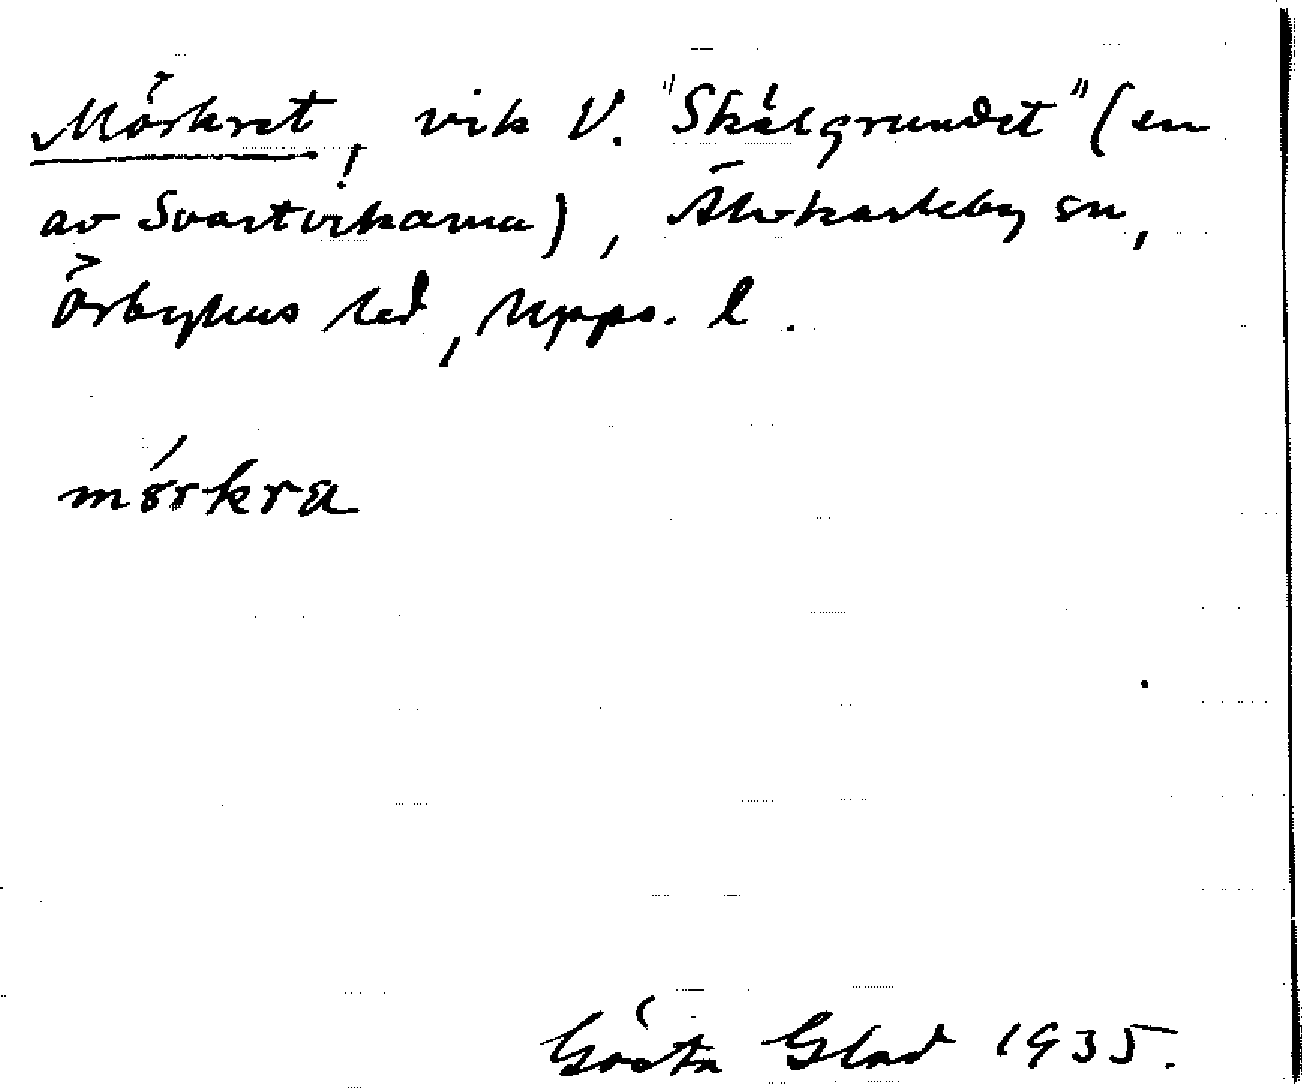 Mörkret, vik V. "Skålgrundet" (en
av Svartvikarna), Älvkarleby sn,
Örbyhus hd, Upps. l.
mörkra
Gösta Glad 1935.